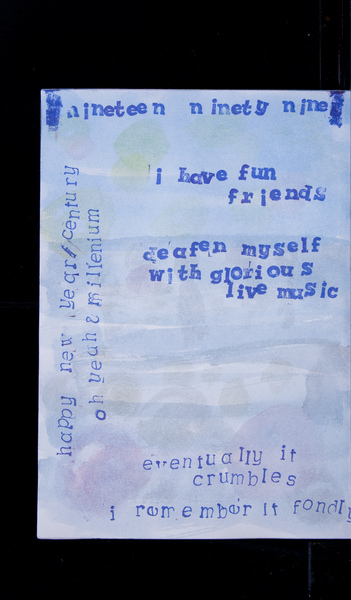 nineteen ninety nine
i have fun
friends
deafen myself
with glorious
live music
happy new year/century
oh yeah & millenium
eventually it
crumbles
i remember it fondly